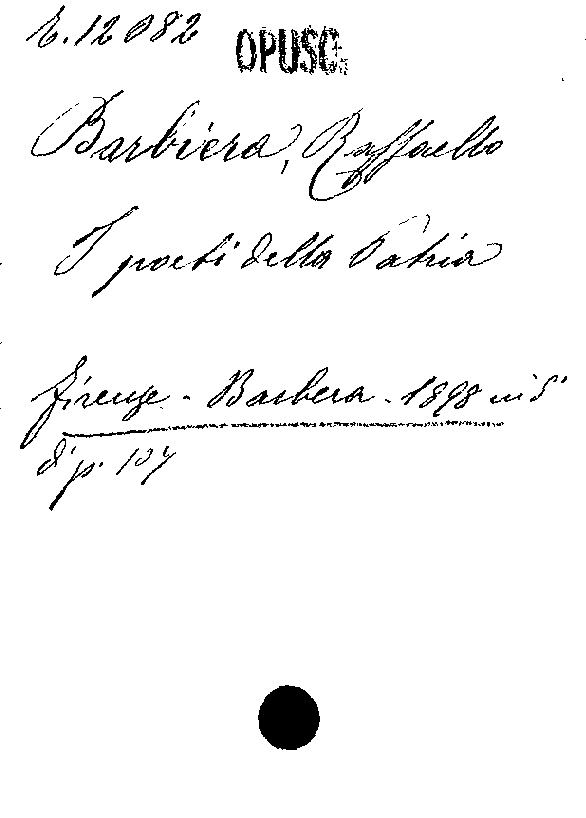 E.12082 OPUSC.
Barbiera, Raffaello
I poeti della Patria
Firenze - Barbera - 1898 in 8°
di p. 107